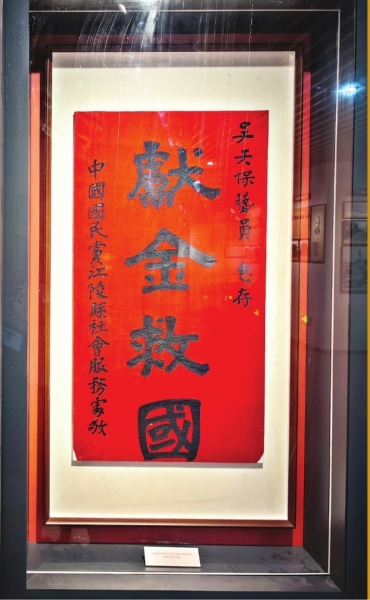 吳天保藝員 惠存
獻金救國
中國國民黨江陵縣社會服務處敬